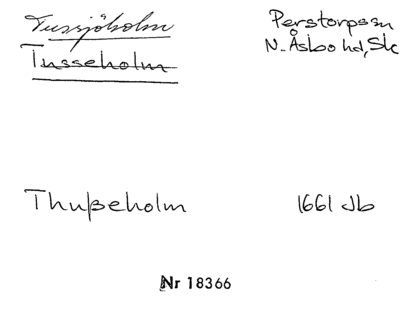 Tussjöholm
Perstorps sn
Tusseholm
N. Åsbo hd, Sk
Thuβeholm
1661 Jb
Nr 18366